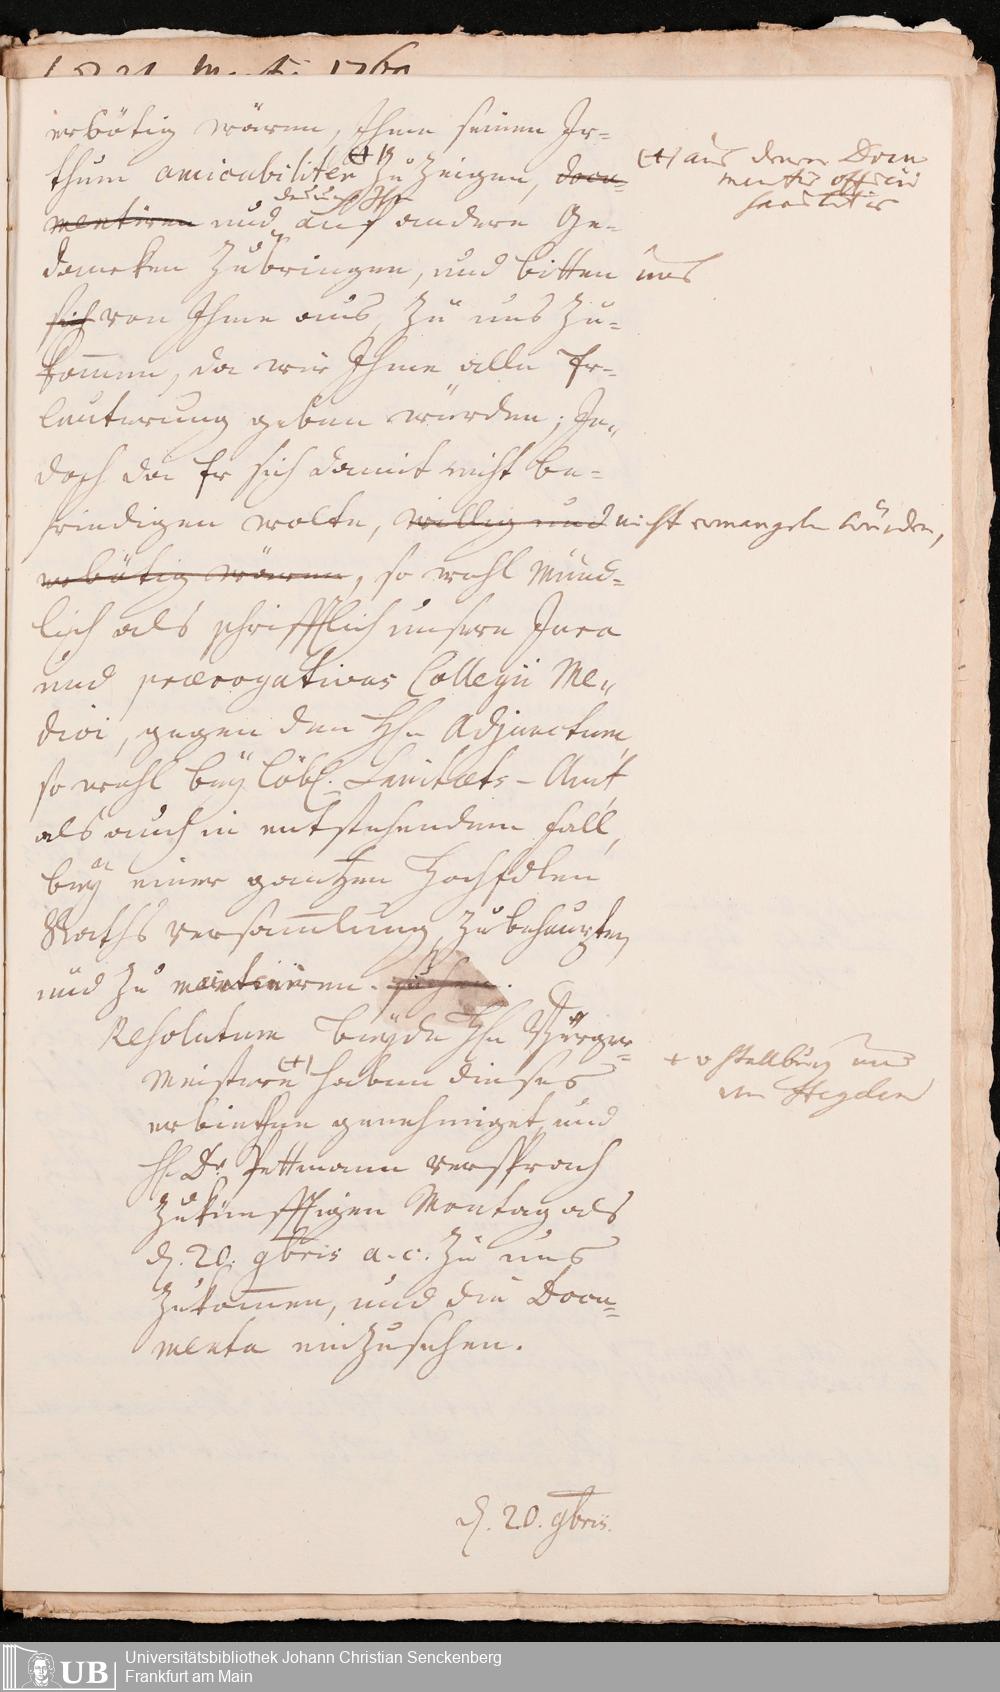 d 21. Marti 1760
erbötig wären, Ihme seinen Ir-
thum amicabiliter (+) Zu Zeigen, docu-
mentiren und auf andere Ge-
dancken Zubringen, und bitten uns
sich von Ihme aus, Zu uns Zu-
kom̄en, da wir Ihme alle Er-
leuterung geben würden; Je-
doch da Er sich damit nicht be-
friedigen wolte, willig und nicht ermangeln würden,
erbötig wären, so wohl Münd-
lich als schrifftlich unsere Jura
und prærogativas Collegii Me-
dici, gegen den Hn Adjunctum,
so wohl beÿ löbl. Sanitæts-Amt
als auch in entstehendem fall,
beÿ einer gantzen HochEdlen
Raths versam̄lung Zubehaupten,
und Zu mentiniren. suchen.
(+) aus denen Docu
mentis officii
Sanitatis
Resolutum beÿde Hn Bürger-
Meistere (+) haben dieses
erbieten genehmiget, und
H. Dr. Pettmann versprach
Zukünfftigen Montag als
d. 20. 9bris a.c. Zu uns
Zukom̄en, und die Docu-
menta einZusehen.
+ v Stallburg und
von Heyden
d. 20. 9bris.
Universitätsbibliothek Johann Christian Senckenberg
Frankfurt am Main
UB